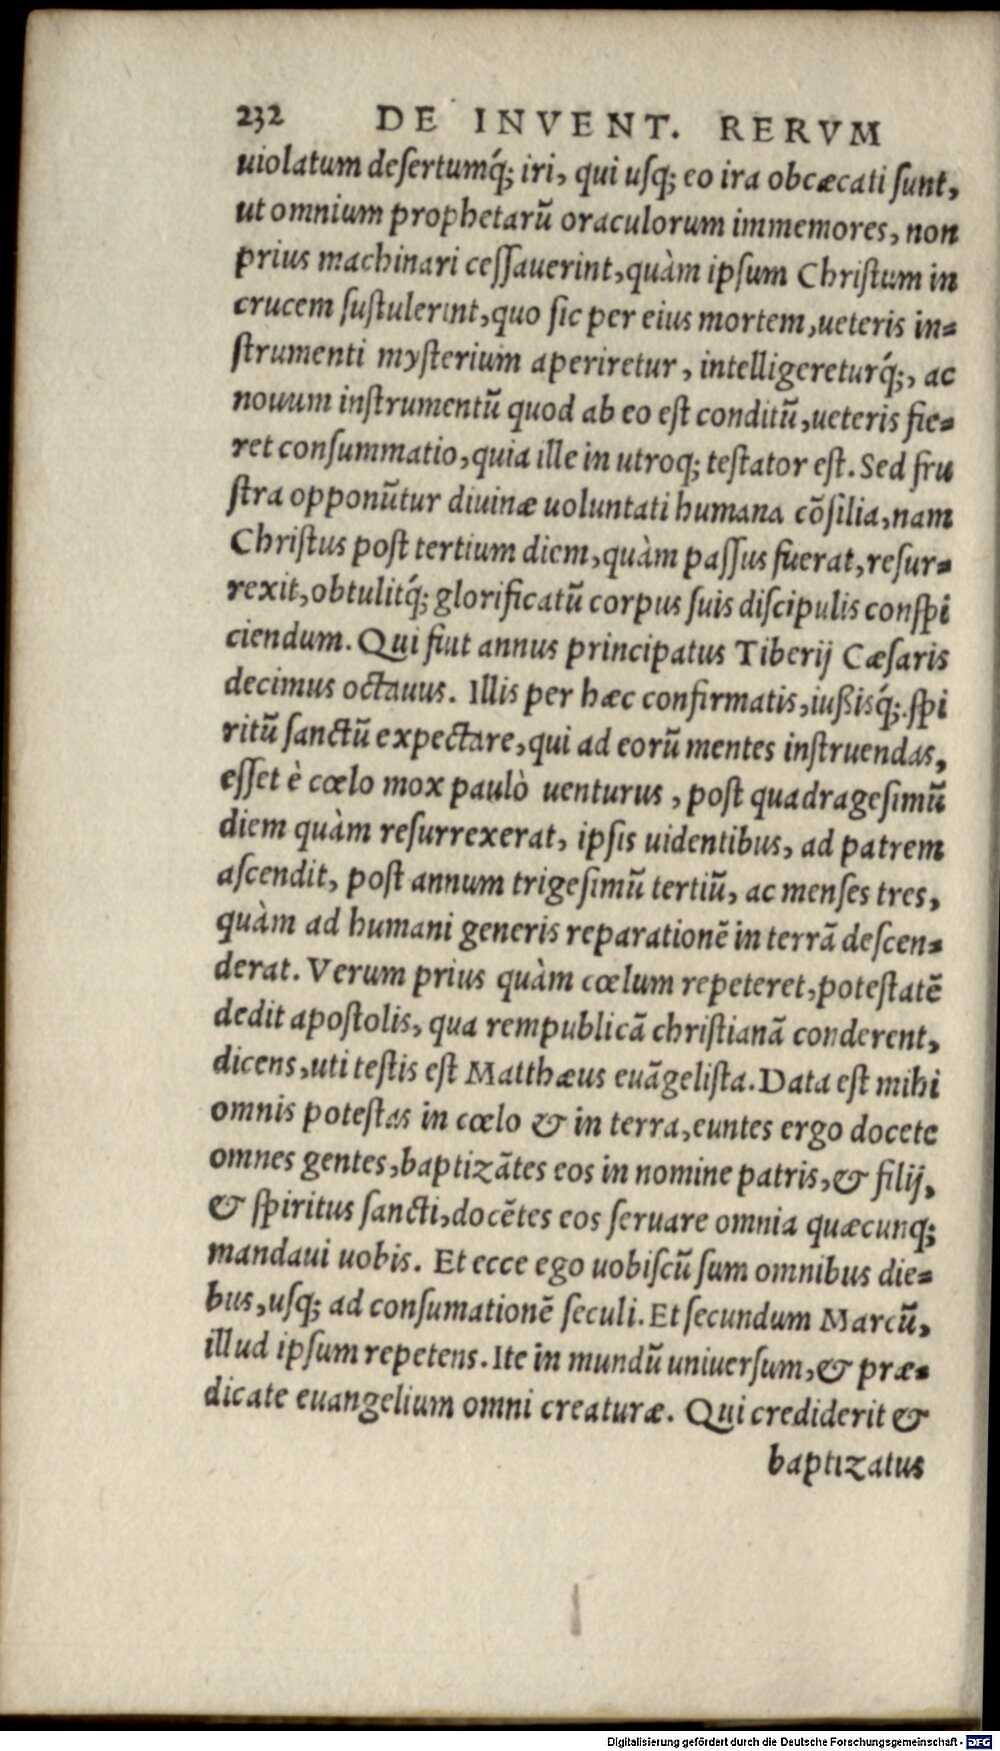 232 DE INVENT. RERVM
uiolatum desertumq́; iri, qui usq; eo ira obcæcati sunt,
ut omnium prophetarũ oraculorum immemores, non
prius machinari cessauerint, quàm ipsum Christum in
crucem sustulerint, quo sic per eius mortem, ueteris in-
strumenti mysterium aperiretur, intelligereturq́;, ac
nouum instrumentũ quod ab eo est conditũ, ueteris fie-
ret consummatio, quia ille in utroq; testator est. Sed fru
stra opponũtur diuinæ uoluntati humana cõsilia, nam
Christus post tertium diem, quàm passus fuerat, resur-
rexit, obtulitq́; glorificatũ corpus suis discipulis conspi
ciendum. Qui fiut annus principatus Tiberij Cæsaris
decimus octauus. Illis per hæc confirmatis, iußisq́; spi
ritũ sanctũ expectare, qui ad eorũ mentes instruendas,
esset è cœlo mox paulò uenturus, post quadragesimũ
diem quàm resurrexerat, ipsis uidentibus, ad patrem
ascendit, post annum trigesimũ tertiũ, ac menses tres,
quàm ad humani generis reparationẽ in terrã descen-
derat. Verum prius quàm cœlum repeteret, potestatẽ
dedit apostolis, qua rempublicã christianã conderent,
dicens, uti testis est Matthæus euãgelista. Data est mihi
omnis potestas in cœlo & in terra, euntes ergo docete
omnes gentes, baptizãtes eos in nomine patris, & filij,
& spiritus sancti, docẽtes eos seruare omnia quæcunq;
mandaui uobis. Et ecce ego uobiscũ sum omnibus die-
bus, usq; ad consumationẽ seculi. Et secundum Marcũ,
illud ipsum repetens. Ite in mundũ uniuersum, & præ-
dicate euangelium omni creaturæ. Qui crediderit &
baptizatus
Digitalisierung gefördert durch die Deutsche Forschungsgemeinschaft - DFG